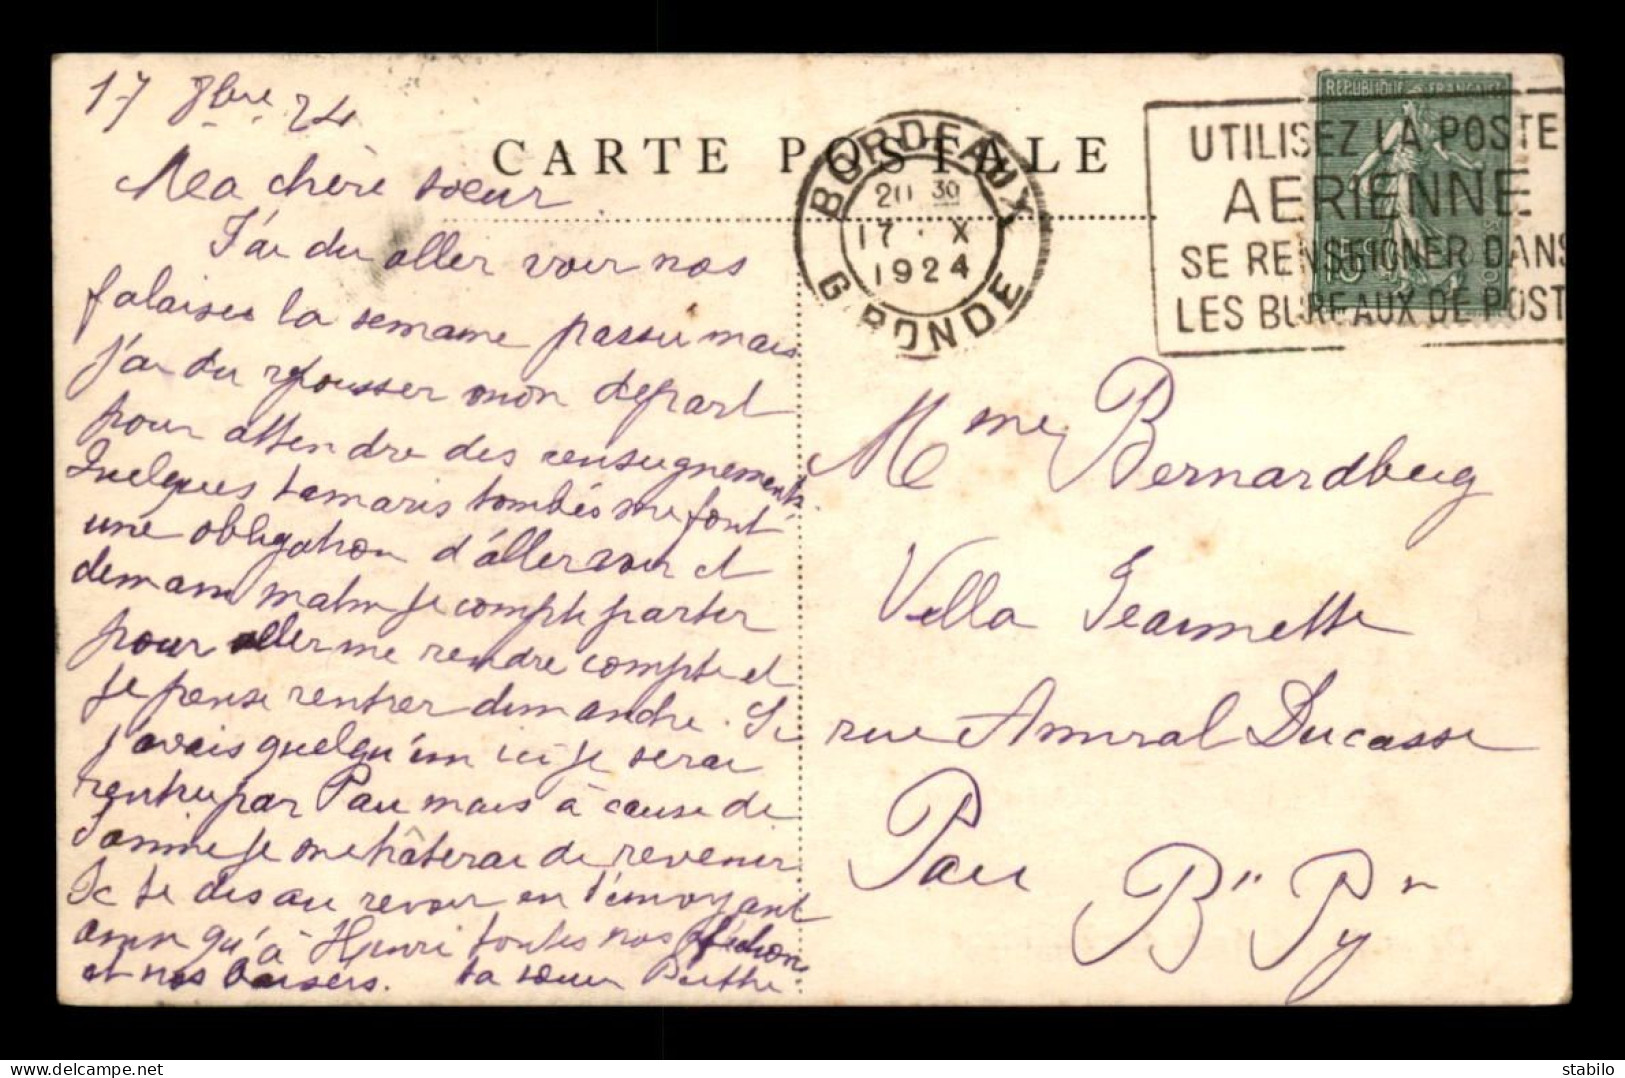 17 8bre 24
CARTE POSTALE
Ma chère soeur
J'ai du aller voir nos
falaises la semaine passée mais
j'ai du repousser mon depart
pour attendre des renseignements.
Quelques tamaris tombés me font
une obligation d'aller voir et
demain matin je compte partir
pour aller me rendre compte et
je pense rentrer dimanche. Si
j'avais quelqu'un ici je serai
rentrée par Pau mais à cause de
je me hâterai de revenir
Je te dis au revoir en t'envoyant
ainsi qu'à Henri toutes nos affections
et nos baisers. ta soeur Berthe
BORDEAUX
20 30
17 · X
1924
GIRONDE
REPUBLIQUE FRANÇAISE
UTILISEZ LA POSTE
AERIENNE
SE RENSEIGNER DANS
LES BUREAUX DE POST
Mme Bernardbeig
Villa Jeannette
rue Amiral Ducasse
Pau
Bses Pyr
stabilo